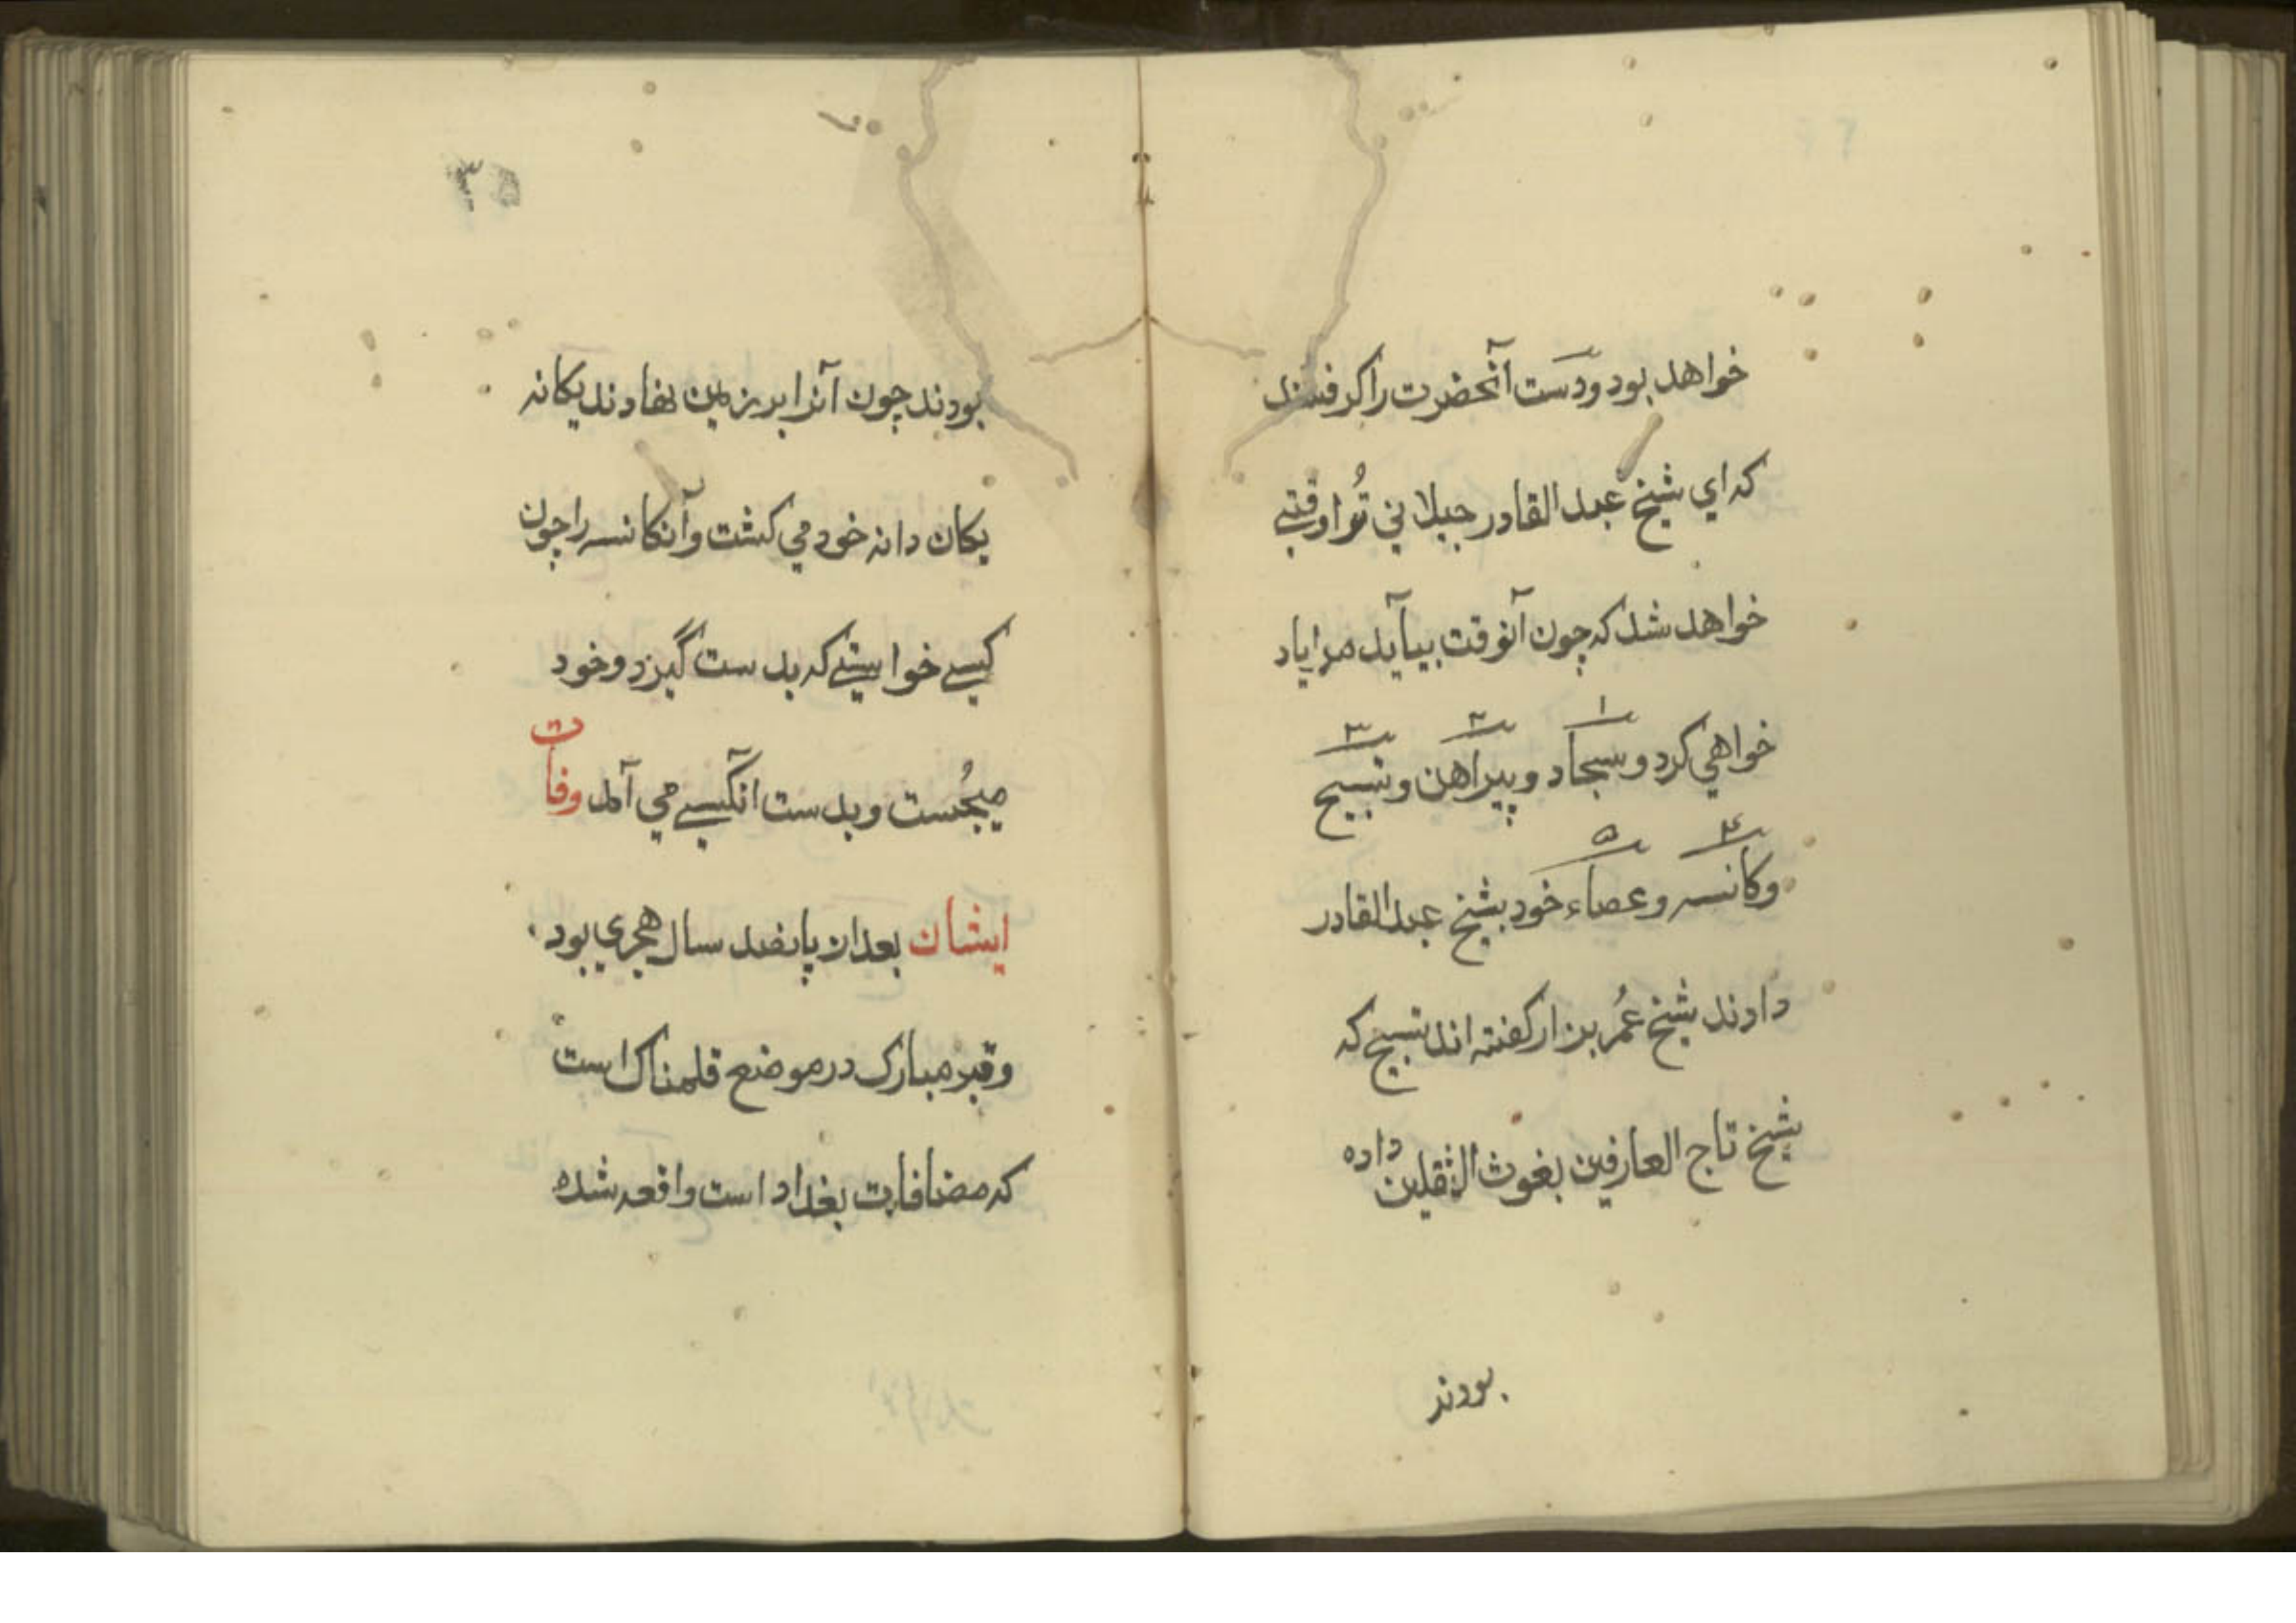 خواهد بود ودست آنحضرت را كرفتند
كه اي شيخ عبد القادر جيلاني تُرا وقتے
خواهد شد كه چون آنوقت بيآيد مرا ياد
خواهي كرد و سجاد و پيراهن و تسبيح
١ ٢ ٣
وكانسه و عصاء خود بشيخ عبد القادر
۴ ۵
دادند شيخ عُمر بزار كفته اند تسبيح كه
شيخ تاج العارفين بغوث الثقلين داده
بودند
بودند چون آنرا بر زمين نهادند يكانه
يكان دانه خود مي كشت و آنكانسه را چون
كسے خواستے كه بدست گيرد و خود
ميجُست و بدست انكسے مي آمد وفات
ايشان بعد از پانصد سال هجري بود
وقبر مبارك در موضع قلمناك است
كه مضافات بغداد است واقعه شده